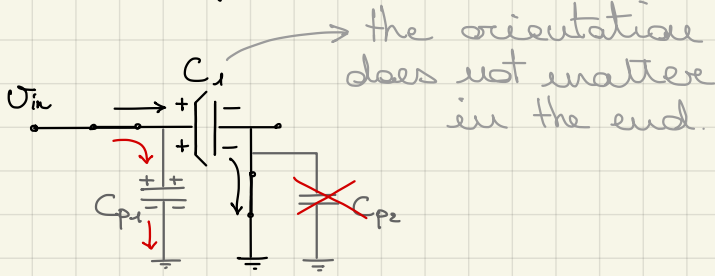 the orientation
does not matter
in the end.
C1
Uin
+ −
+ −
+ +
− −
Cp1
Cp2